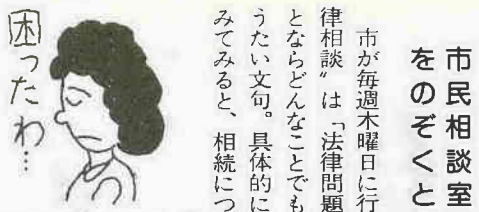 市民相談室
をのぞくと
市が毎週木曜日に行
律相談〟は「法律問題
とならどんなことでも
うたい文句。具体的に
みてみると、相続につ
困ったわ…